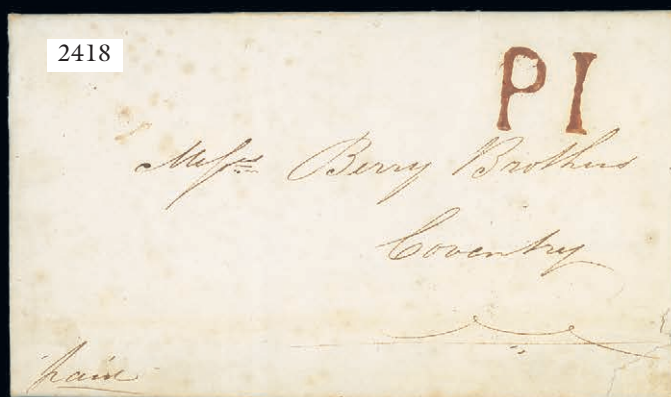 2418
P I
Messrs Berry Brothers
Coventry
paid